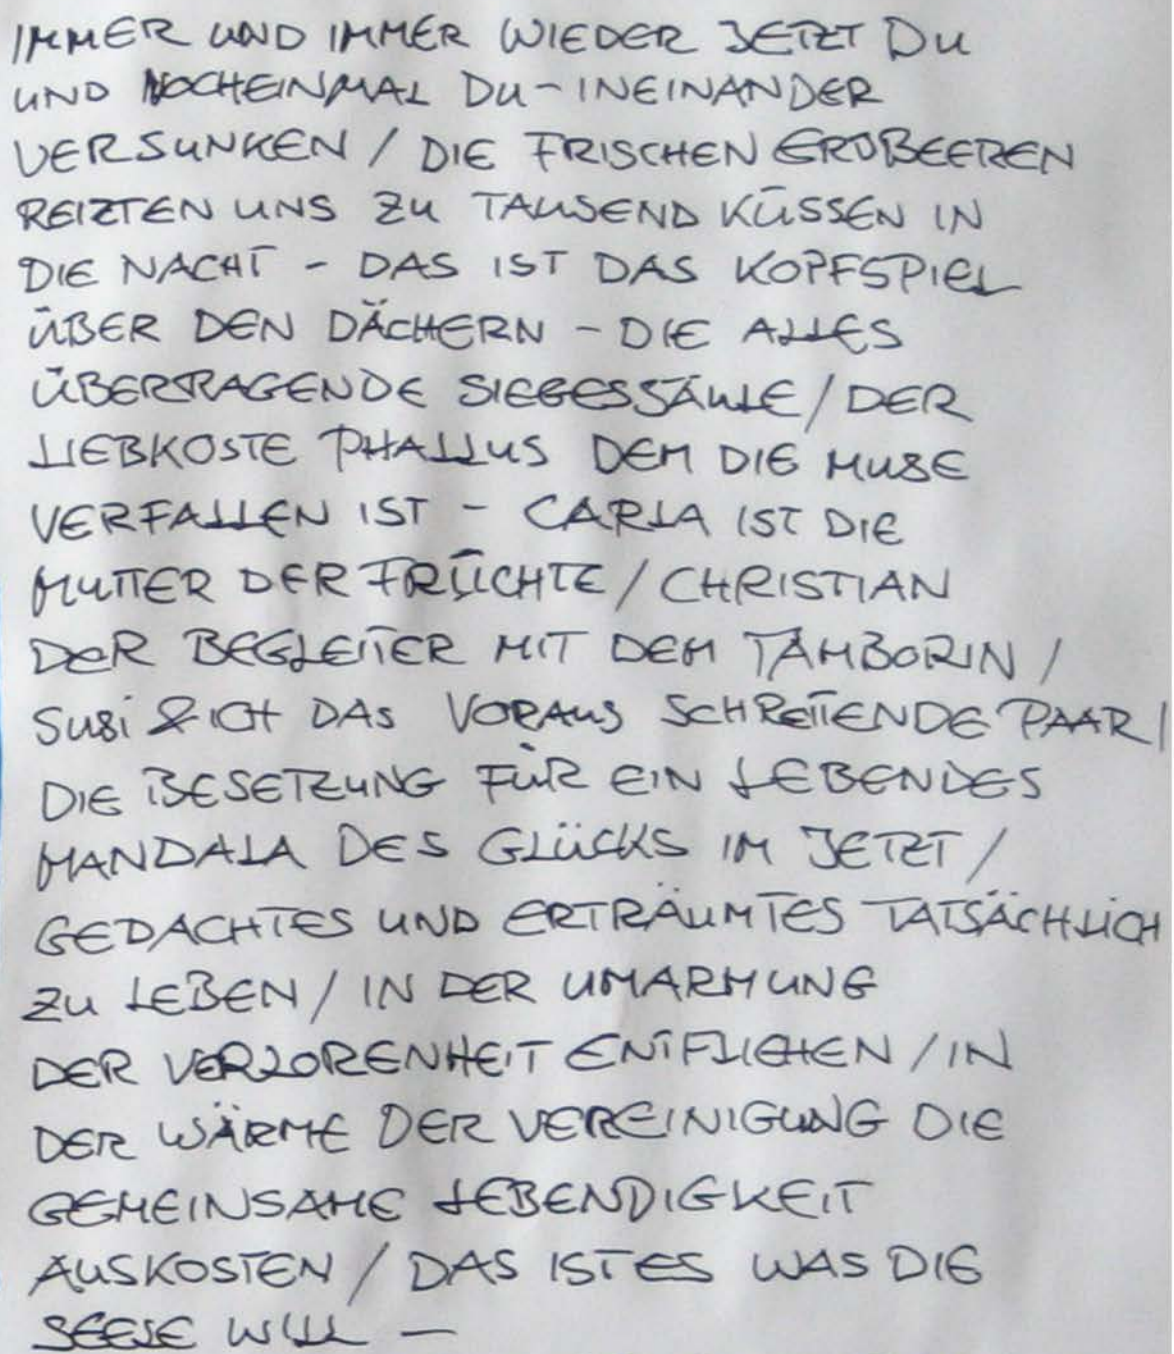 IMMER UND IMMER WIEDER JETZT DU
UND NOCHEINMAL DU - INEINANDER
VERSUNKEN / DIE FRISCHEN ERDBEEREN
REIZTEN UNS ZU TAUSEND KÜSSEN IN
DIE NACHT - DAS IST DAS KOPFSPIEL
ÜBER DEN DÄCHERN - DIE ALLES
ÜBERRAGENDE SIEGESSÄULE / DER
LIEBKOSTE PHALLUS DEM DIE MUSE
VERFALLEN IST - CARLA IST DIE
MUTTER DER FRÜCHTE / CHRISTIAN
DER BEGLEITER MIT DEM TAMBORIN /
SUSI & ICH DAS VORAUS SCHREITENDE PAAR /
DIE BESETZUNG FÜR EIN LEBENDES
MANDALA DES GLÜCKS IM JETZT /
GEDACHTES UND ERTRÄUMTES TATSÄCHLICH
ZU LEBEN / IN DER UMARMUNG
DER VERLORENHEIT ENTFLIEHEN / IN
DER WÄRME DER VEREINIGUNG DIE
GEMEINSAME LEBENDIGKEIT
AUSKOSTEN / DAS IST ES WAS DIE
SEELE WILL —